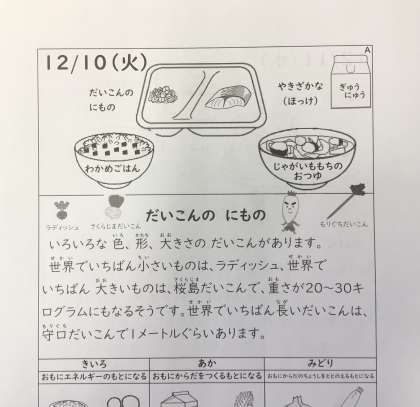 12/10(火)
A
だいこんの
にもの
やきざかな
(ほっけ)
ぎゅう
にゅう
わかめごはん
じゃがいももちの
おつゆ
ラディッシュ
さくらじまだいこん
だいこんの にもの
もりぐちだいこん
いろいろな 色、形、大きさの だいこんがあります。
世界でいちばん小さいものは、ラディッシュ、世界で
いちばん 大きいものは、桜島だいこんで、重さが20～30キ
ログラムにもなるそうです。世界でいちばん長いだいこんは、
守口だいこんで1メートルぐらいあります。
きいろ
あか
みどり
おもにエネルギーのもとになる
おもにからだをつくるもとになる
おもにからだのちょうしをととのえるもとになる